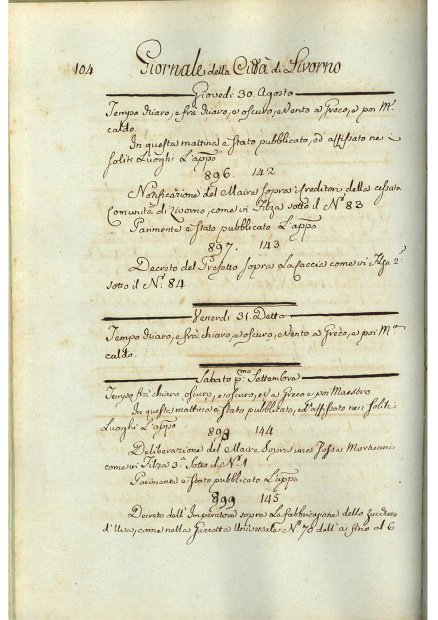 104 Giornale della Città di Livorno
Giovedì 30. Agosto
Tempo chiaro, e frà chiaro, e oscuro, e Vento a Greco, e poi M.º
caldo.
In questa mattina è stato pubblicato, ed affissato ne
soliti Luoghi L'app.º
896. 142
Notificazione del Maire sopra i creditori della cessata
Comunità di Livorno, come in Filza sotto il N.º 83
Parimente è stato pubblicato L'app.º
897. 143
Decreto del Prefetto sopra La Caccia come in Filza 2.ª
sotto il N.º 84
Venerdì 31. Detto
Tempo chiaro, e frà chiaro, e oscuro, e Vento a Greco, e poi M.º
caldo.
Sabato p.mo Settembre
Tempo frà chiaro oscuro, e oscuro, e V a Greco e poi Maestro
In questa mattina è stato pubblicato, ed affissato nei soliti
Luoghi L'app.º
898 144
Deliberazione del Maire Sopra
come in Filza 3.ª Sotto il N.º 1
Parimente è stato pubblicato L'app.º
899 145
Decreto dell'Imperatore sopra La fabbricazione dello zucchero
d'Uva, come nella Gazzetta Universale N.º 70 dall'a fino al 6